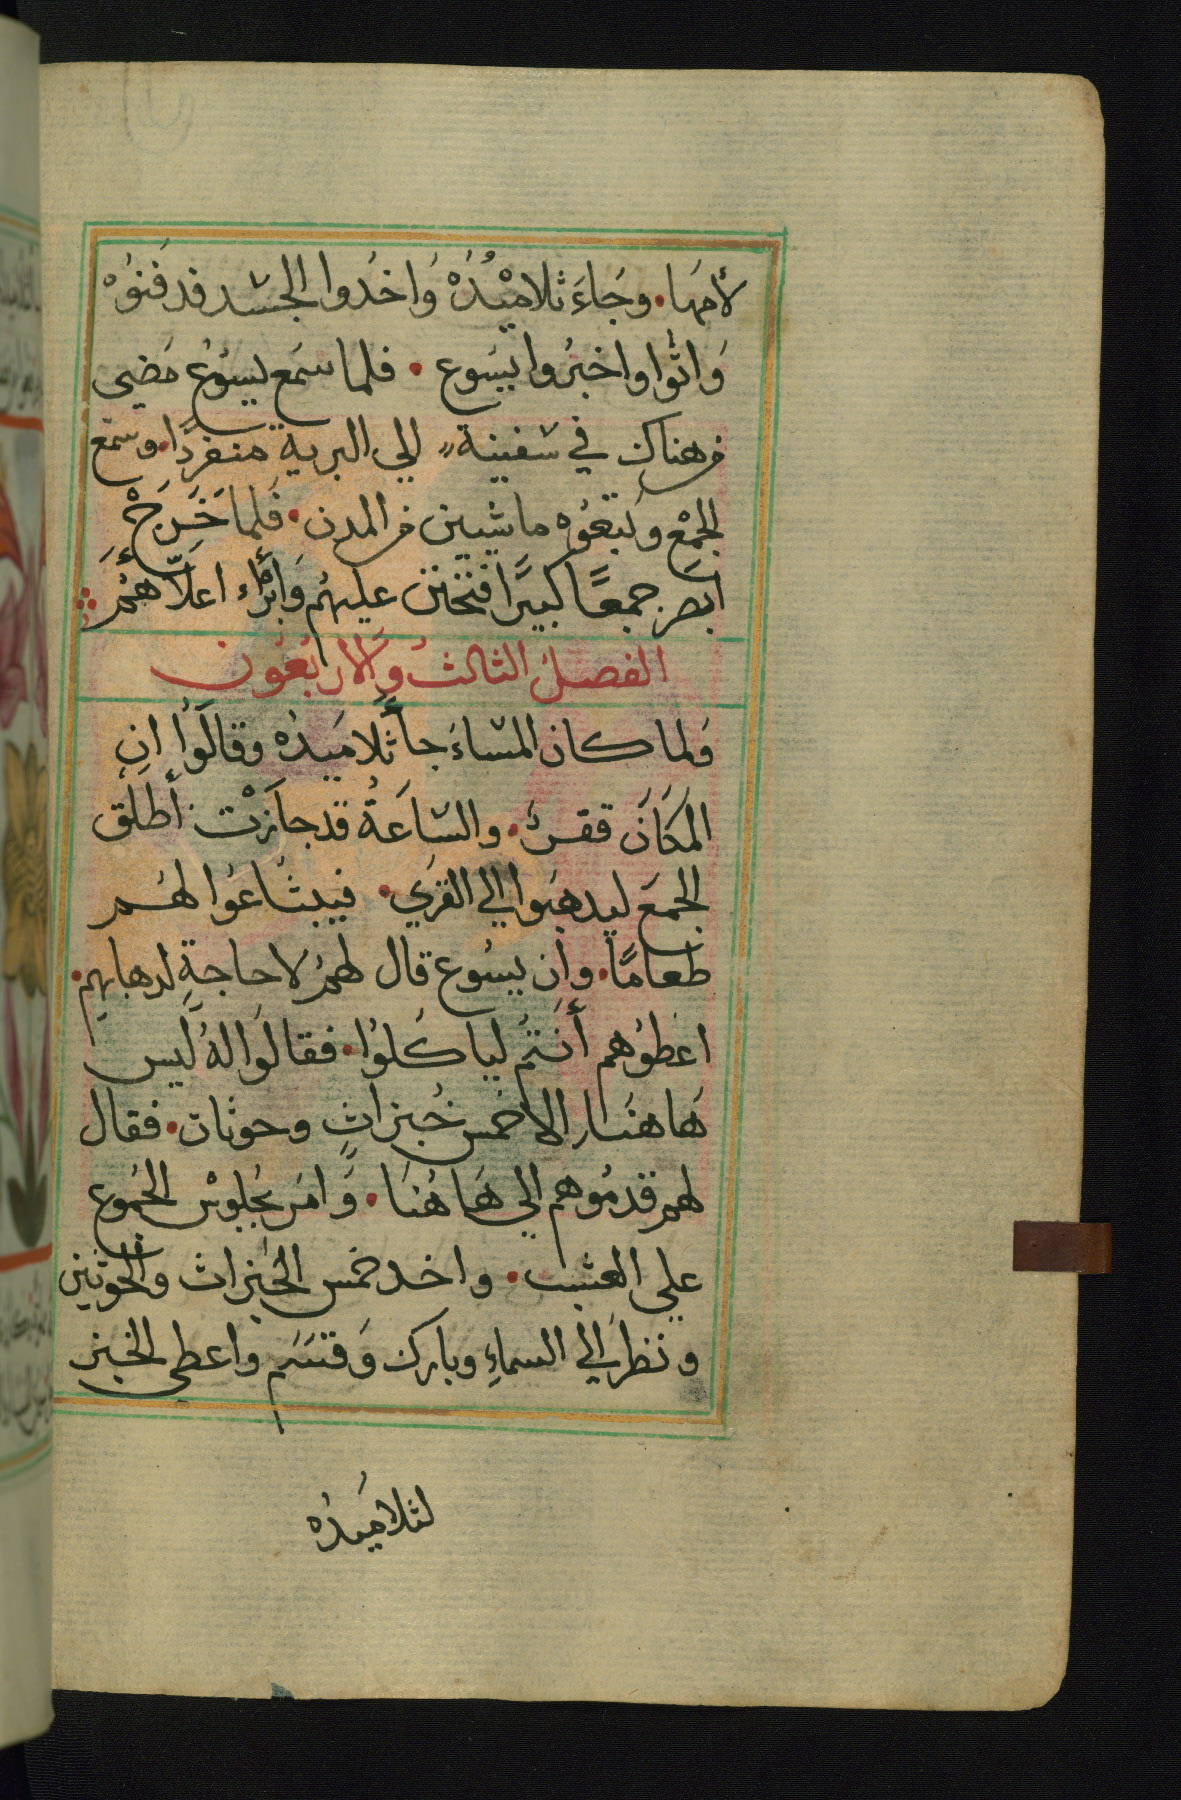 لأمها. وجَاءَ تلاميْدُهْ وَاخدوا الجسد فدفنوُهْ
وَاتوا واخبرُوا يسَوع . فلما سَمع يسوُعُ مَضي
من هناك في سفينة الي البرية منفردًا. وسمع
الجمْع وتبعُوه ماشيين من المدن. فلما خَرجْ
ابصَر جمعًا كبيرًا فتحنن عليهُم وَابرْاء اعلَّاهُمَ
الفصلُ الثالثُ والاربَعُون
وَلما كان المسَاءَ جاَ تَلاميَدُه وقالوُا ان
المكَانَ قفرٌ. والسَاعَةُ قد جازَتْ أطلق
الجمعَ ليدهبَوا الي القرَي. فيبتَاعُوا لهُم
طعَامًا. وان يسُوع قال لهمُ لا حاجةِ لدهابهِم.
اعَطوُهم أنتمُ لياكلوُا. فقالوَا لهُ لَيس
هَاهنَا الا خمس خُبزاتٍ وحوتان. فقال
لهم قدمُوهم الي هَاهُنَا. وَّامَر بجُلوسْ الجموُع
علي العشب. واخد خمس الخبزات والحوتين
ونظرَ الي السماءِ وبارك وَقسَمَ واعطي الخبز
لتلاميَدُه